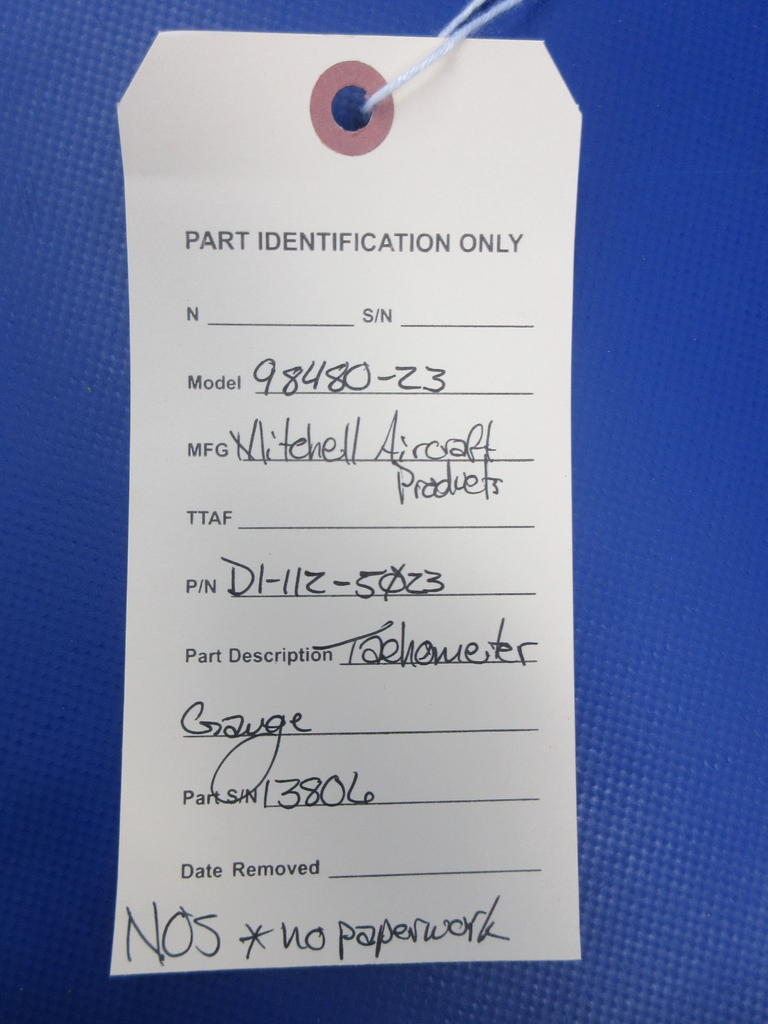 PART IDENTIFICATION ONLY
N ____________ S/N ____________
Model 98480-23
MFG Mitchell Aircraft
Products
TTAF ____________
P/N D1-112-5023
Part Description Tachometer
Gauge
Part S/N 13806
Date Removed ____________
NOS * no paperwork